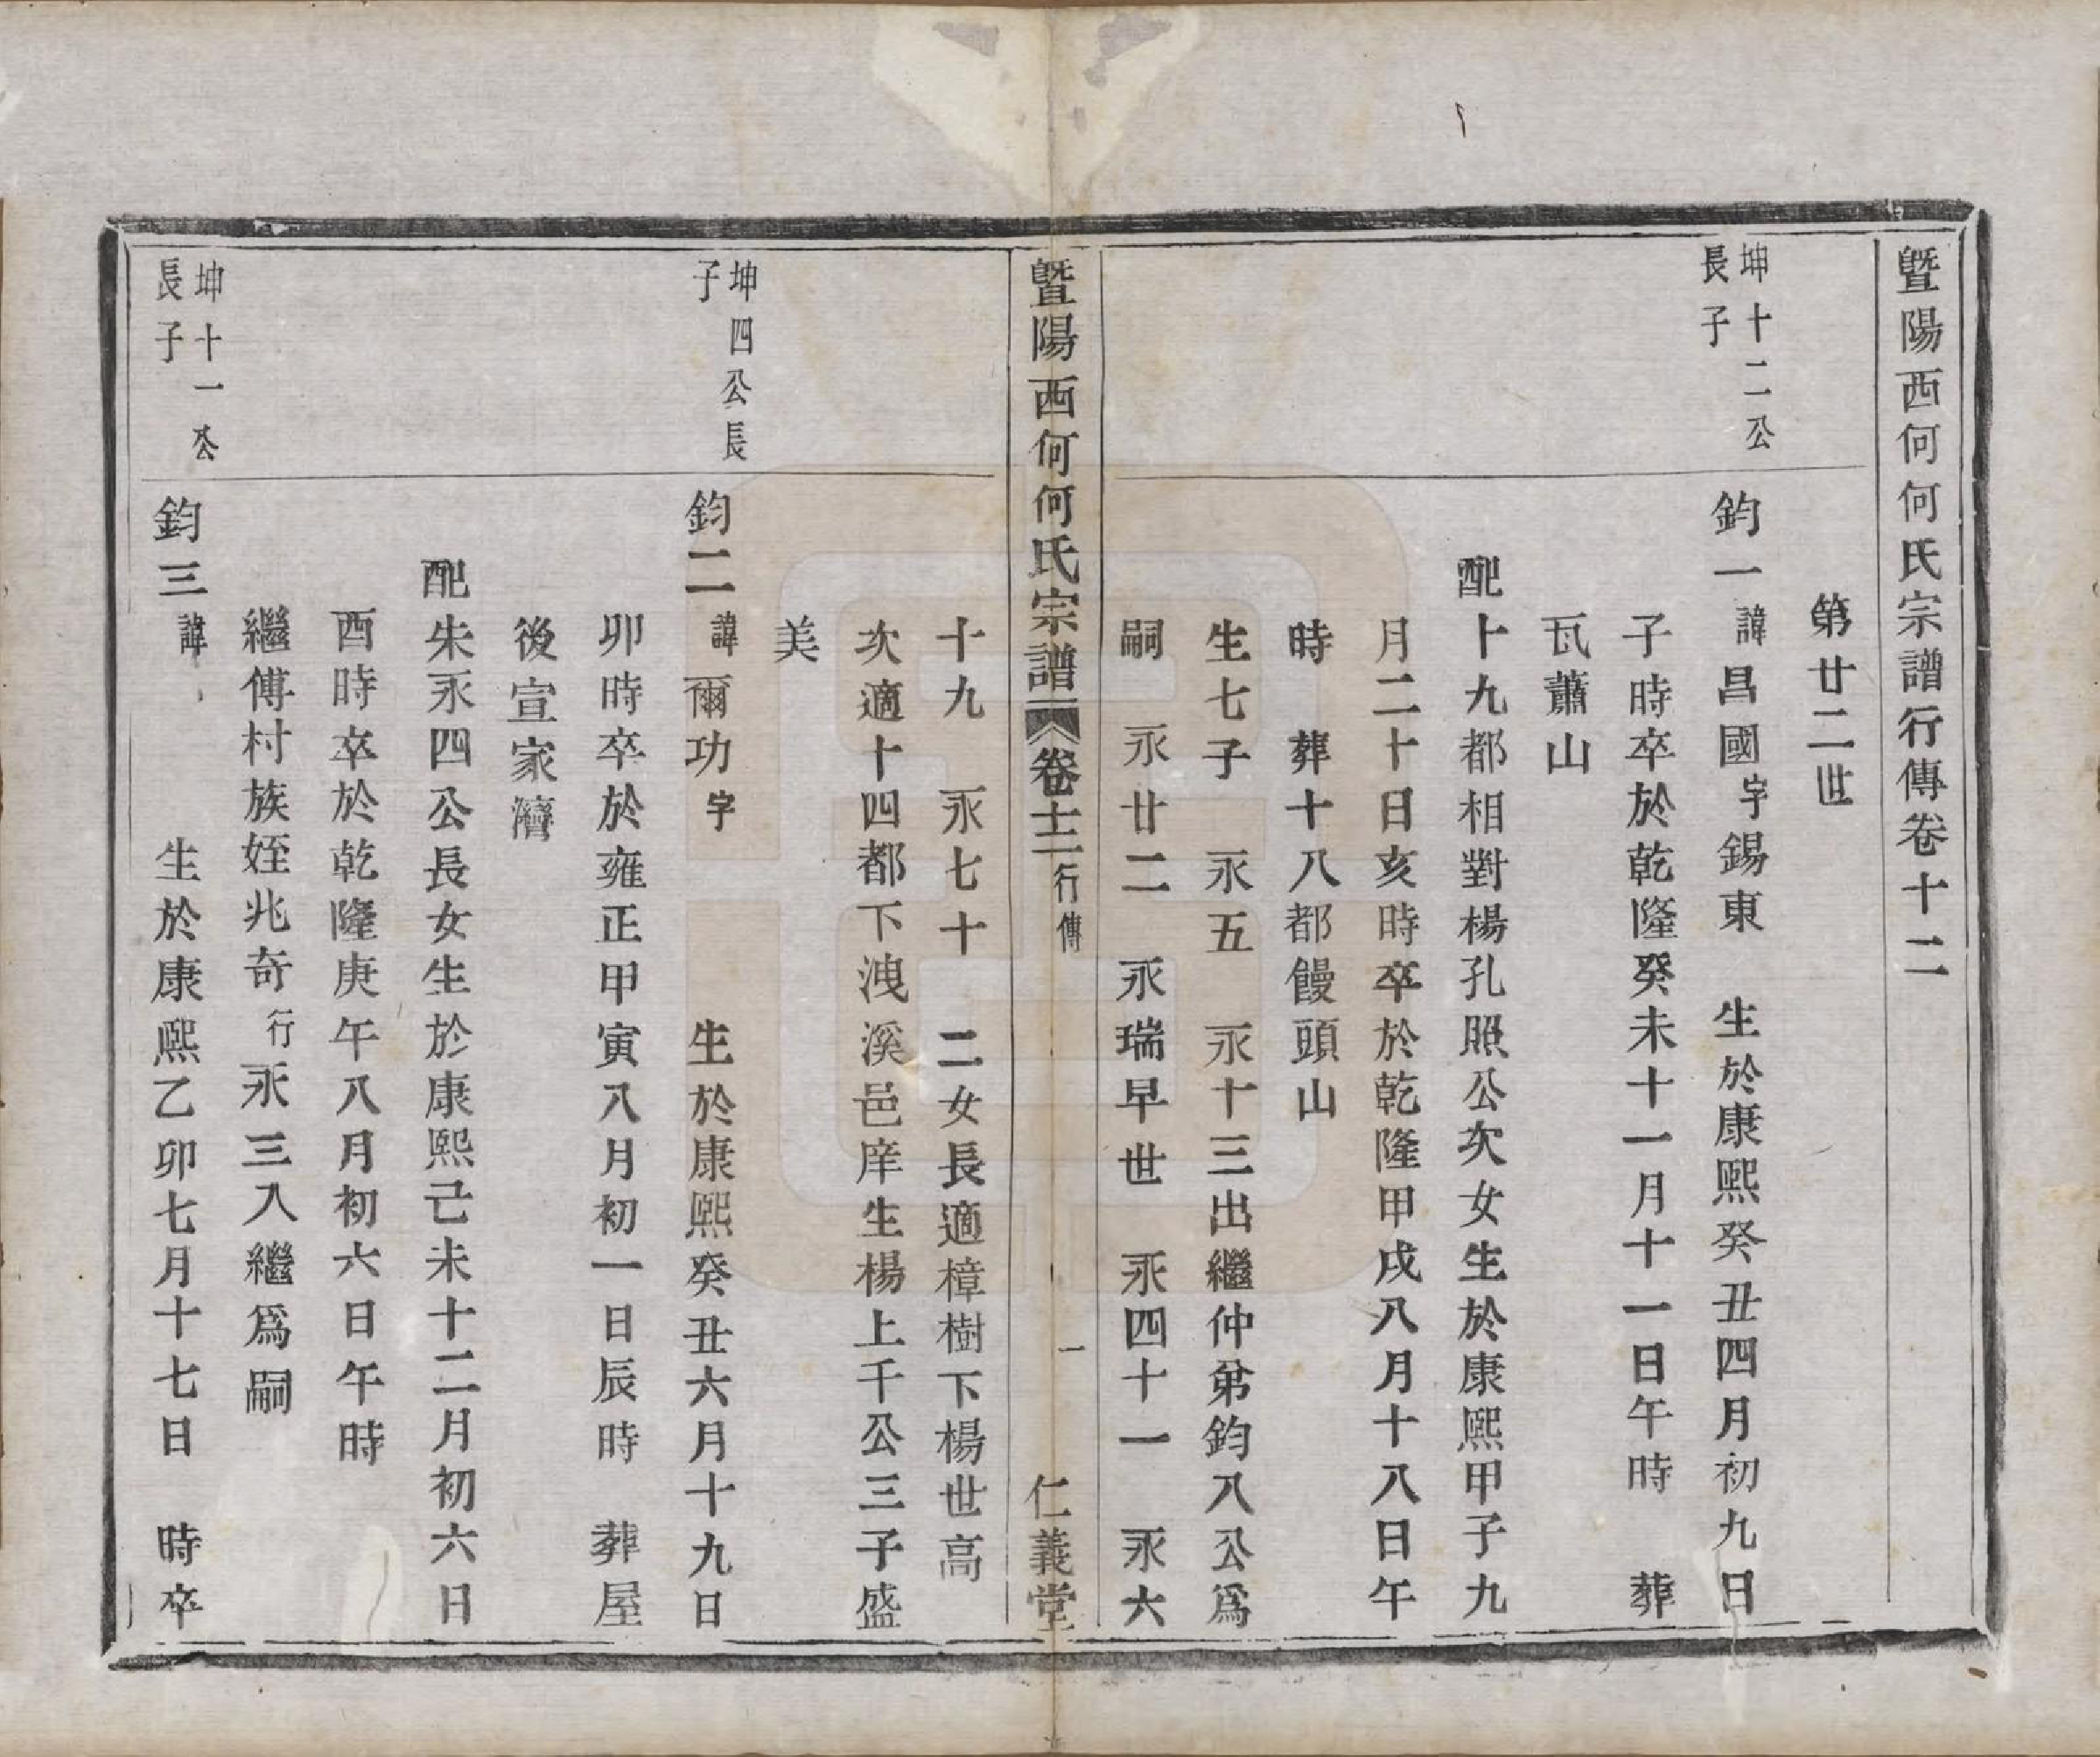 暨陽西何何氏宗譜行傳卷十二
第廿二世
坤十二公
長子
鈞一諱昌國字錫東　生於康熙癸丑四月初九日
子時卒於乾隆癸未十一月十一日午時　葬
瓦蕭山
配卜九都相對楊孔照公次女生於康熙甲子九
月二十日亥時卒於乾隆甲戌八月十八日午
時　葬十八都饅頭山
生七子　永五　永十三出繼仲弟鈞八公爲
嗣　永廿二　永瑞早世　永四十一　永六
暨陽西何何氏宗譜　卷十二　行傳　一　仁義堂
十九　永七十　二女長適樟樹下楊世高
次適十四都下洩溪邑庠生楊上千公三子盛
美
坤四公長
子
鈞二諱爾功字　生於康熙癸丑六月十九日
卯時卒於雍正甲寅八月初一日辰時　葬屋
後宣家濟
配朱永四公長女生於康熙己未十二月初六日
酉時卒於乾隆庚午八月初六日午時
繼傅村族姪兆奇行永三入繼爲嗣
坤十一公
長子
鈞三諱　生於康熙乙卯七月十七日　時卒